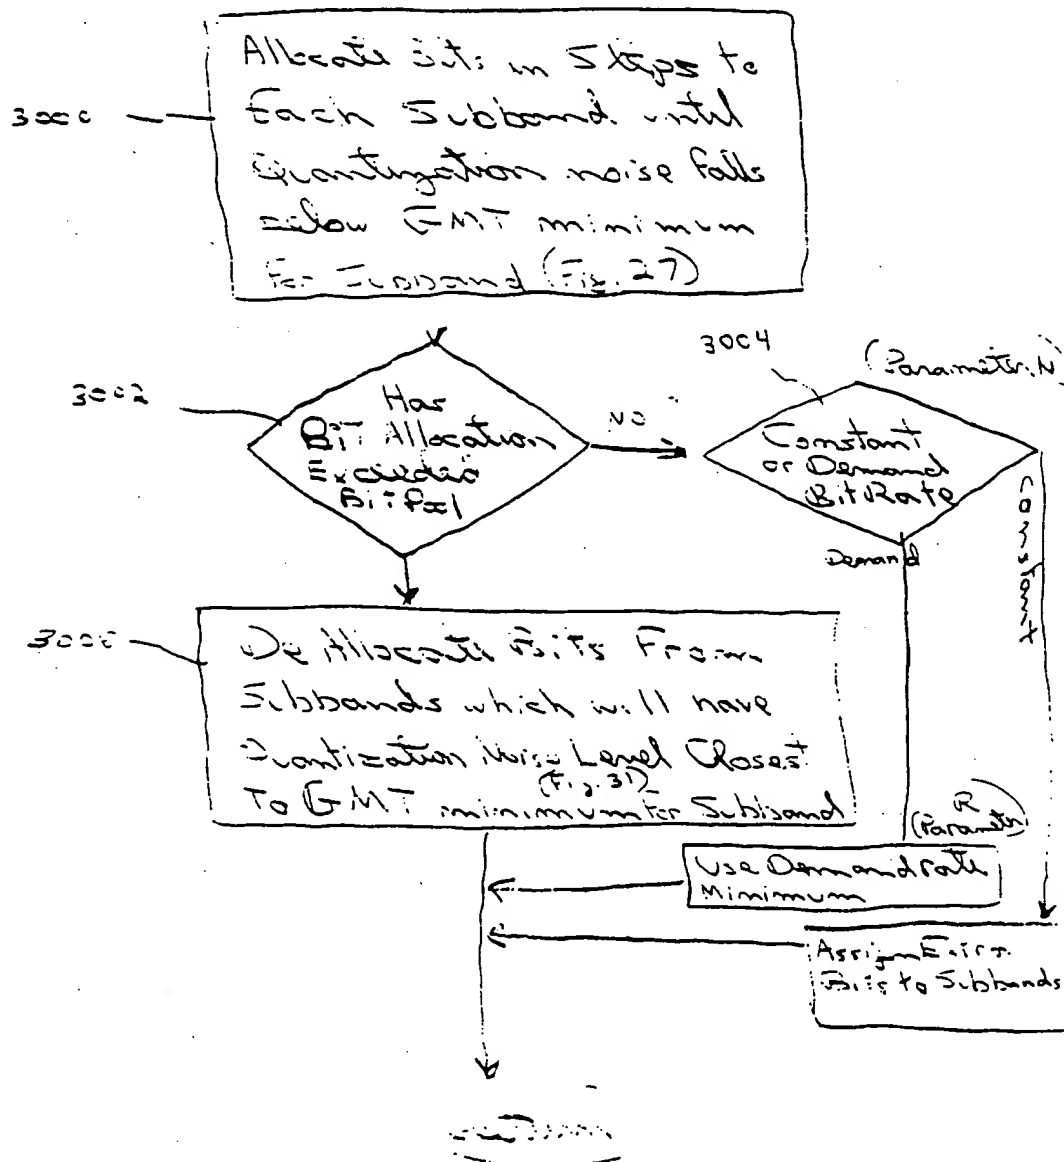 Allocate Bits in Steps to
Each Subband until
Quantization noise falls
below GMT minimum
for Subband (Fig. 27)
3000
3002
Has
Bit Allocation
Exceeded
Bit Pool
NO
3004
(Parameter N)
Constant
or Demand
Bit Rate
Demand
Constant
De Allocate Bits From
Subbands which will have
Quantization Noise Level Closest
(Fig. 31)
To GMT minimum for Subband
R
(Parameter)
Use Demand rate
Minimum
Assign Extra
Bits to Subbands